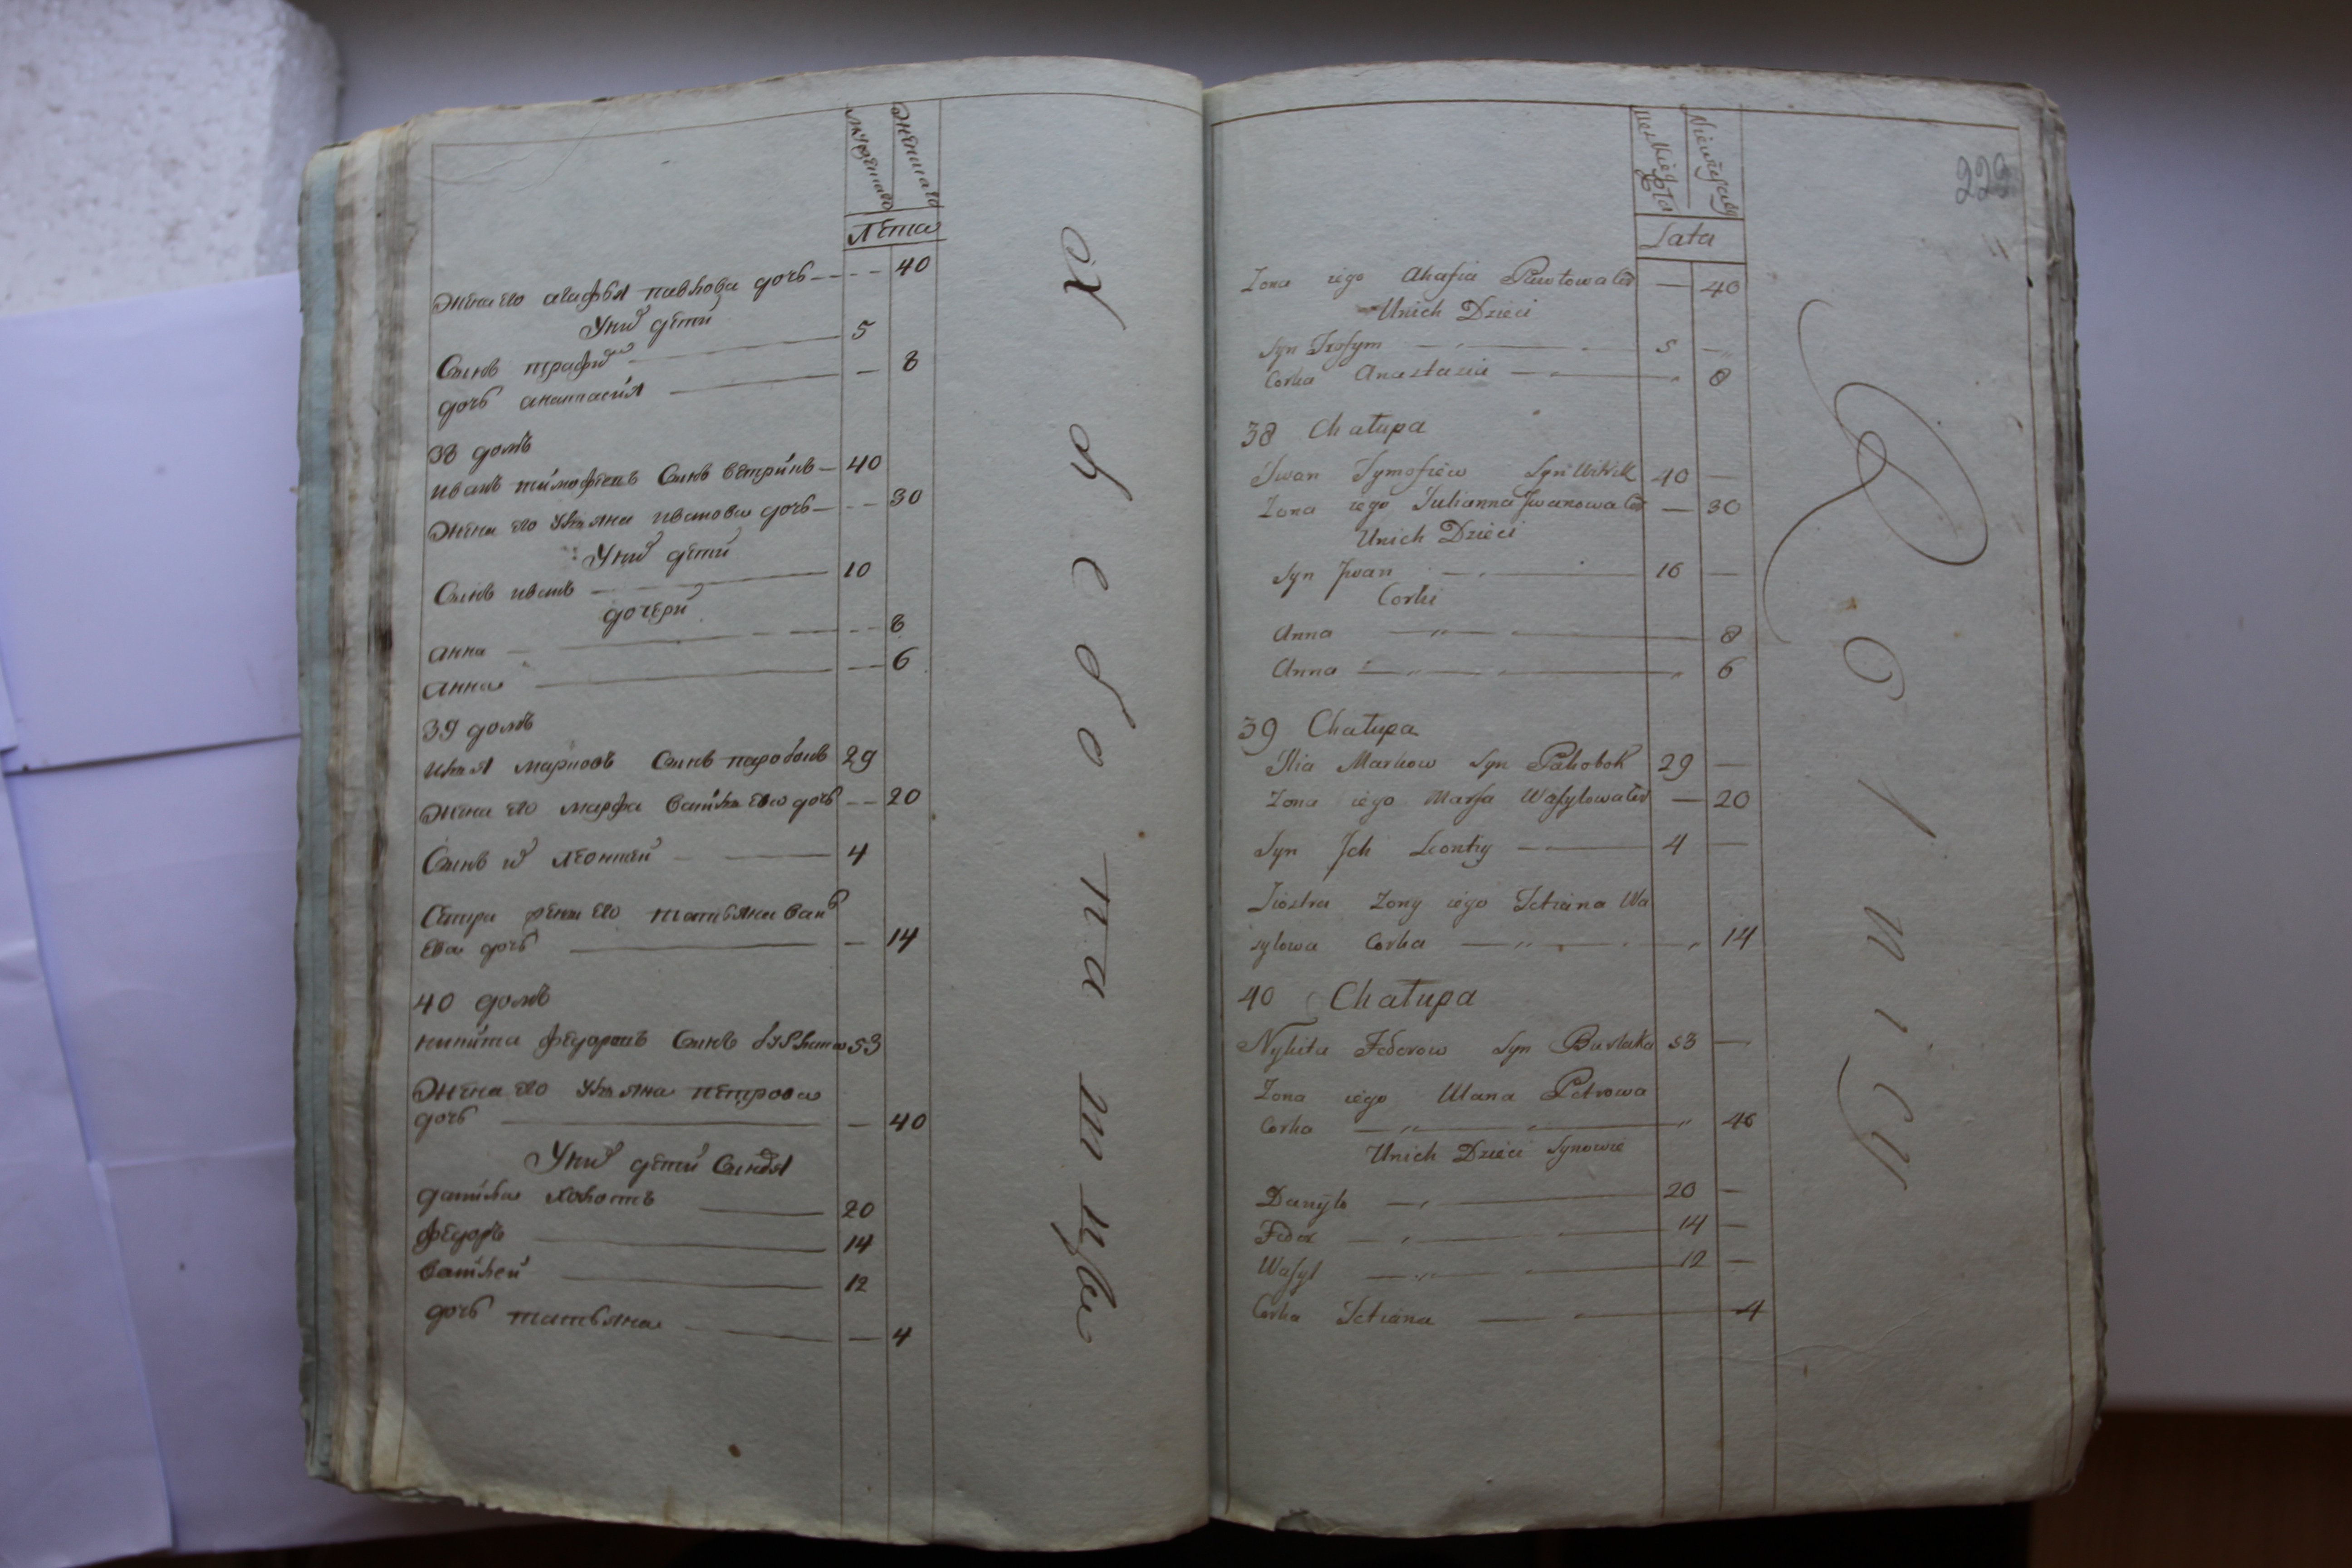 мужеска
женска
Лѣта
жена его агафья павлова дочь 40
У них дѣти
Сынъ трафим 5
дочь анастасия 8
38 домъ
иванъ тимофеевъ Сынъ 40
жена его ульяна иванова дочь 30
У них дѣти
Сынъ иванъ 10
дочери
анна 8
анна 6
39 домъ
илья марковъ Сынъ 29
жена его марфа василева дочь 20
Сынъ их леонтей 4
Сестра жены его татьяна васил
ева дочь 14
40 домъ
никита федоровъ Сынъ 53
жена его ульяна петрова
дочь 40
У них дѣти Сыновя
данила холостъ 20
федоръ 14
василей 12
дочь татьяна 4
хлебопашцы
Męskiego
Lata
229
Zona iego Ahafia Pawłowa Cor — 40
Unich Dzieci
Syn Trofym 5 —
Corka Anastazia 8
38 Chałupa
Jwan Tymofiew Syn 40 —
Zona iego Julianna Jwanowa Cor — 30
Unich Dzieci
Syn Jwan 10 —
Corki
Anna 8
Anna 6
39 Chałupa
Ilia Markow Syn 29 —
Zona iego Marfa Wasylowa Cor — 20
Syn Jch Leontiy 4 —
Siostra Zony iego Tetiana Wa
sylowa Corka 14
40 Chałupa
Nykita Fedorow Syn Burlaka 53 —
Zona iego Ulana Petrowa
Corka 40
Unich Dzieci Synowie
Danyło 20 —
Fedor 14 —
Wasyl 12 —
Corka Tetiana 4
Rolnicy